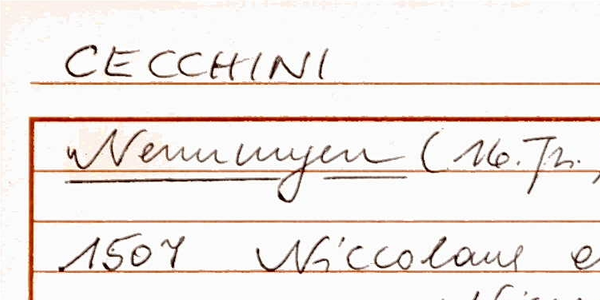 CECCHINI
Nennungen (16. Jh.,
1507 Niccolaus e